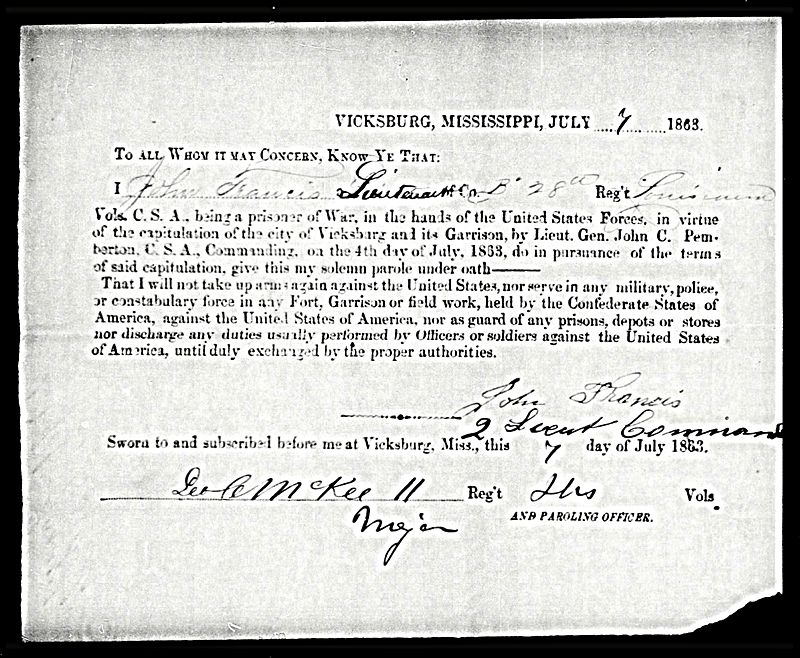 VICKSBURG, MISSISSIPPI, JULY 7 1863.
TO ALL WHOM IT MAY CONCERN, KNOW YE THAT:
I John Francis a Lieutenant Co. B 28th Reg't Louisiana
Vols. C. S. A., being a prisoner of War, in the hands of the United States Forces, in virtue
of the capitulation of the city of Vicksburg and its Garrison, by Lieut. Gen. John C. Pem-
berton, C. S. A., Commanding, on the 4th day of July, 1863, do in pursuance of the terms
of said capitulation, give this my solemn parole under oath——
That I will not take up arms again against the United States, nor serve in any military, police,
or constabulary force in any Fort, Garrison or field work, held by the Confederate States of
America, against the United States of America, nor as guard of any prisons, depots or stores
nor discharge any duties usually performed by Officers or soldiers against the United States
of America, until duly exchanged by the proper authorities.
John Francis
2 Lieut Command
Sworn to and subscribed before me at Vicksburg, Miss., this 7 day of July 1863.
Geo C McKee 11 Reg't Ills Vols.
Major AND PAROLING OFFICER.